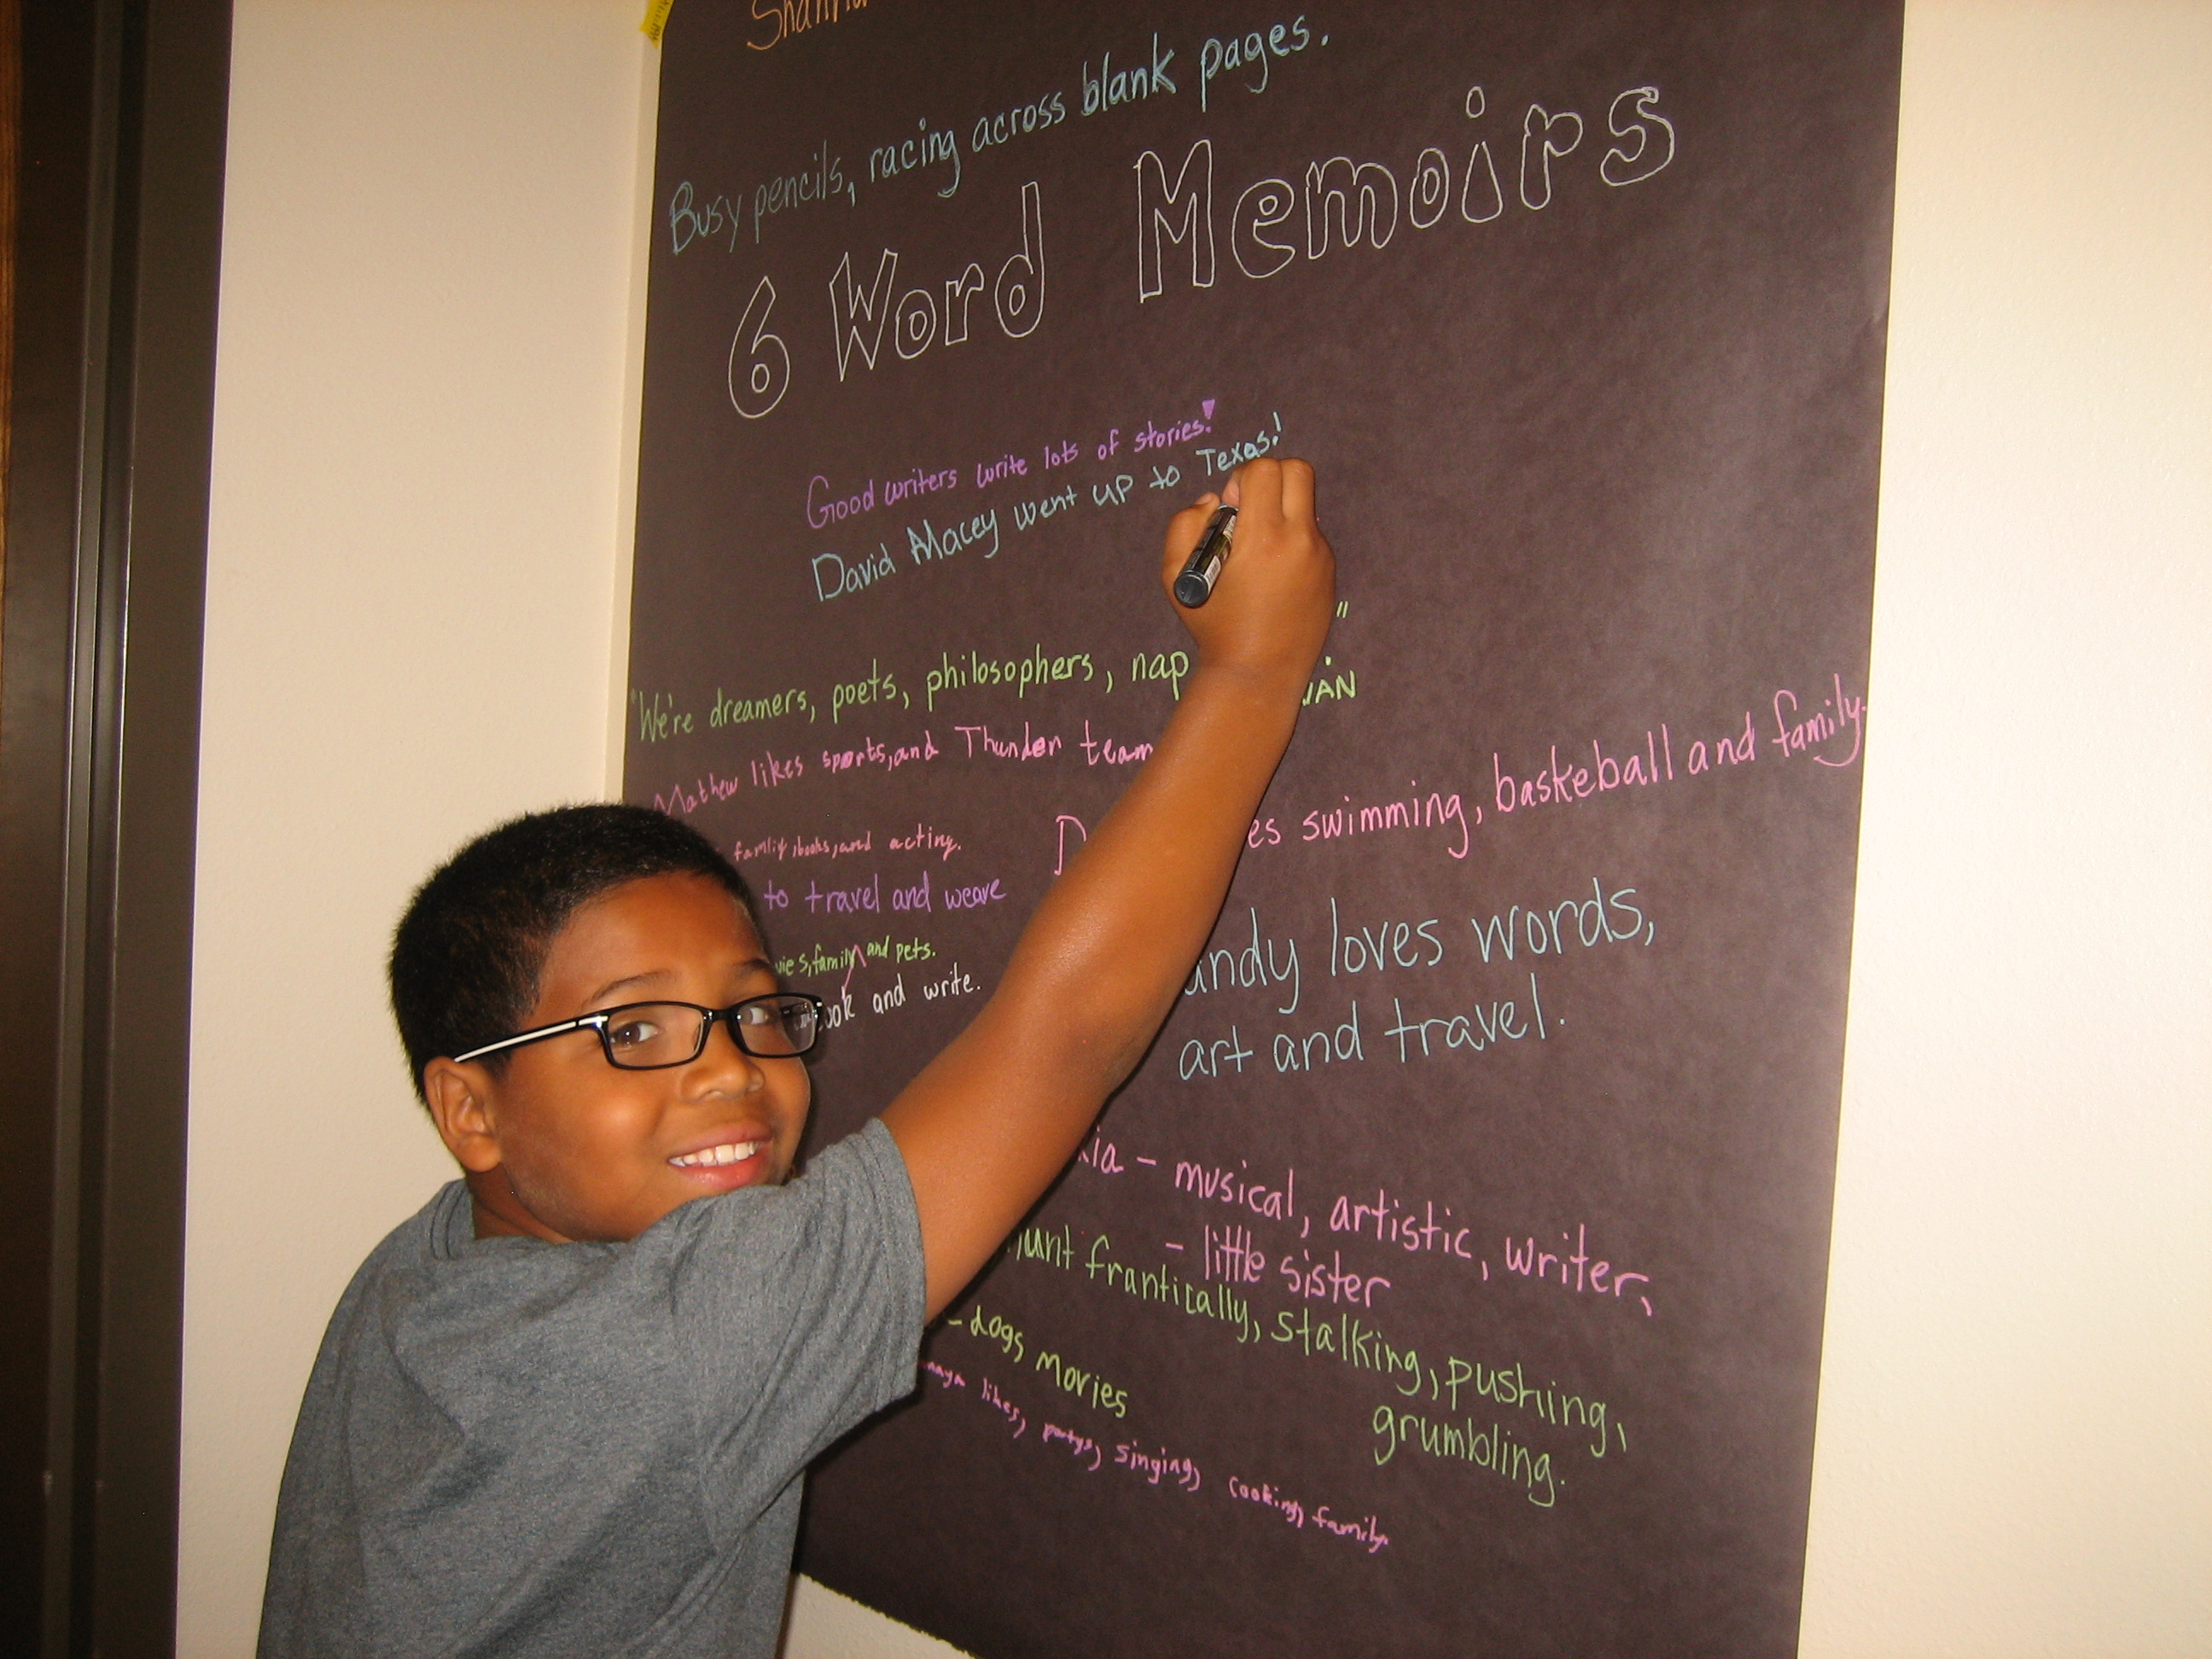 Busy pencils, racing across blank pages.
6 Word Memoirs
Good writers write lots of stories!
David Macey went up to Texas!
"We're dreamers, poets, philosophers, nap "
Mathew likes sports, and Thunder team
swimming, baskeball and family.
famliy, books, and acting.
to travel and weave
family and pets.
and write.
loves words,
art and travel.
- musical, artistic, writer,
- little sister
frantically, stalking, pushing,
grumbling.
- dogs movies
likes, partys, singing, cooking, family.